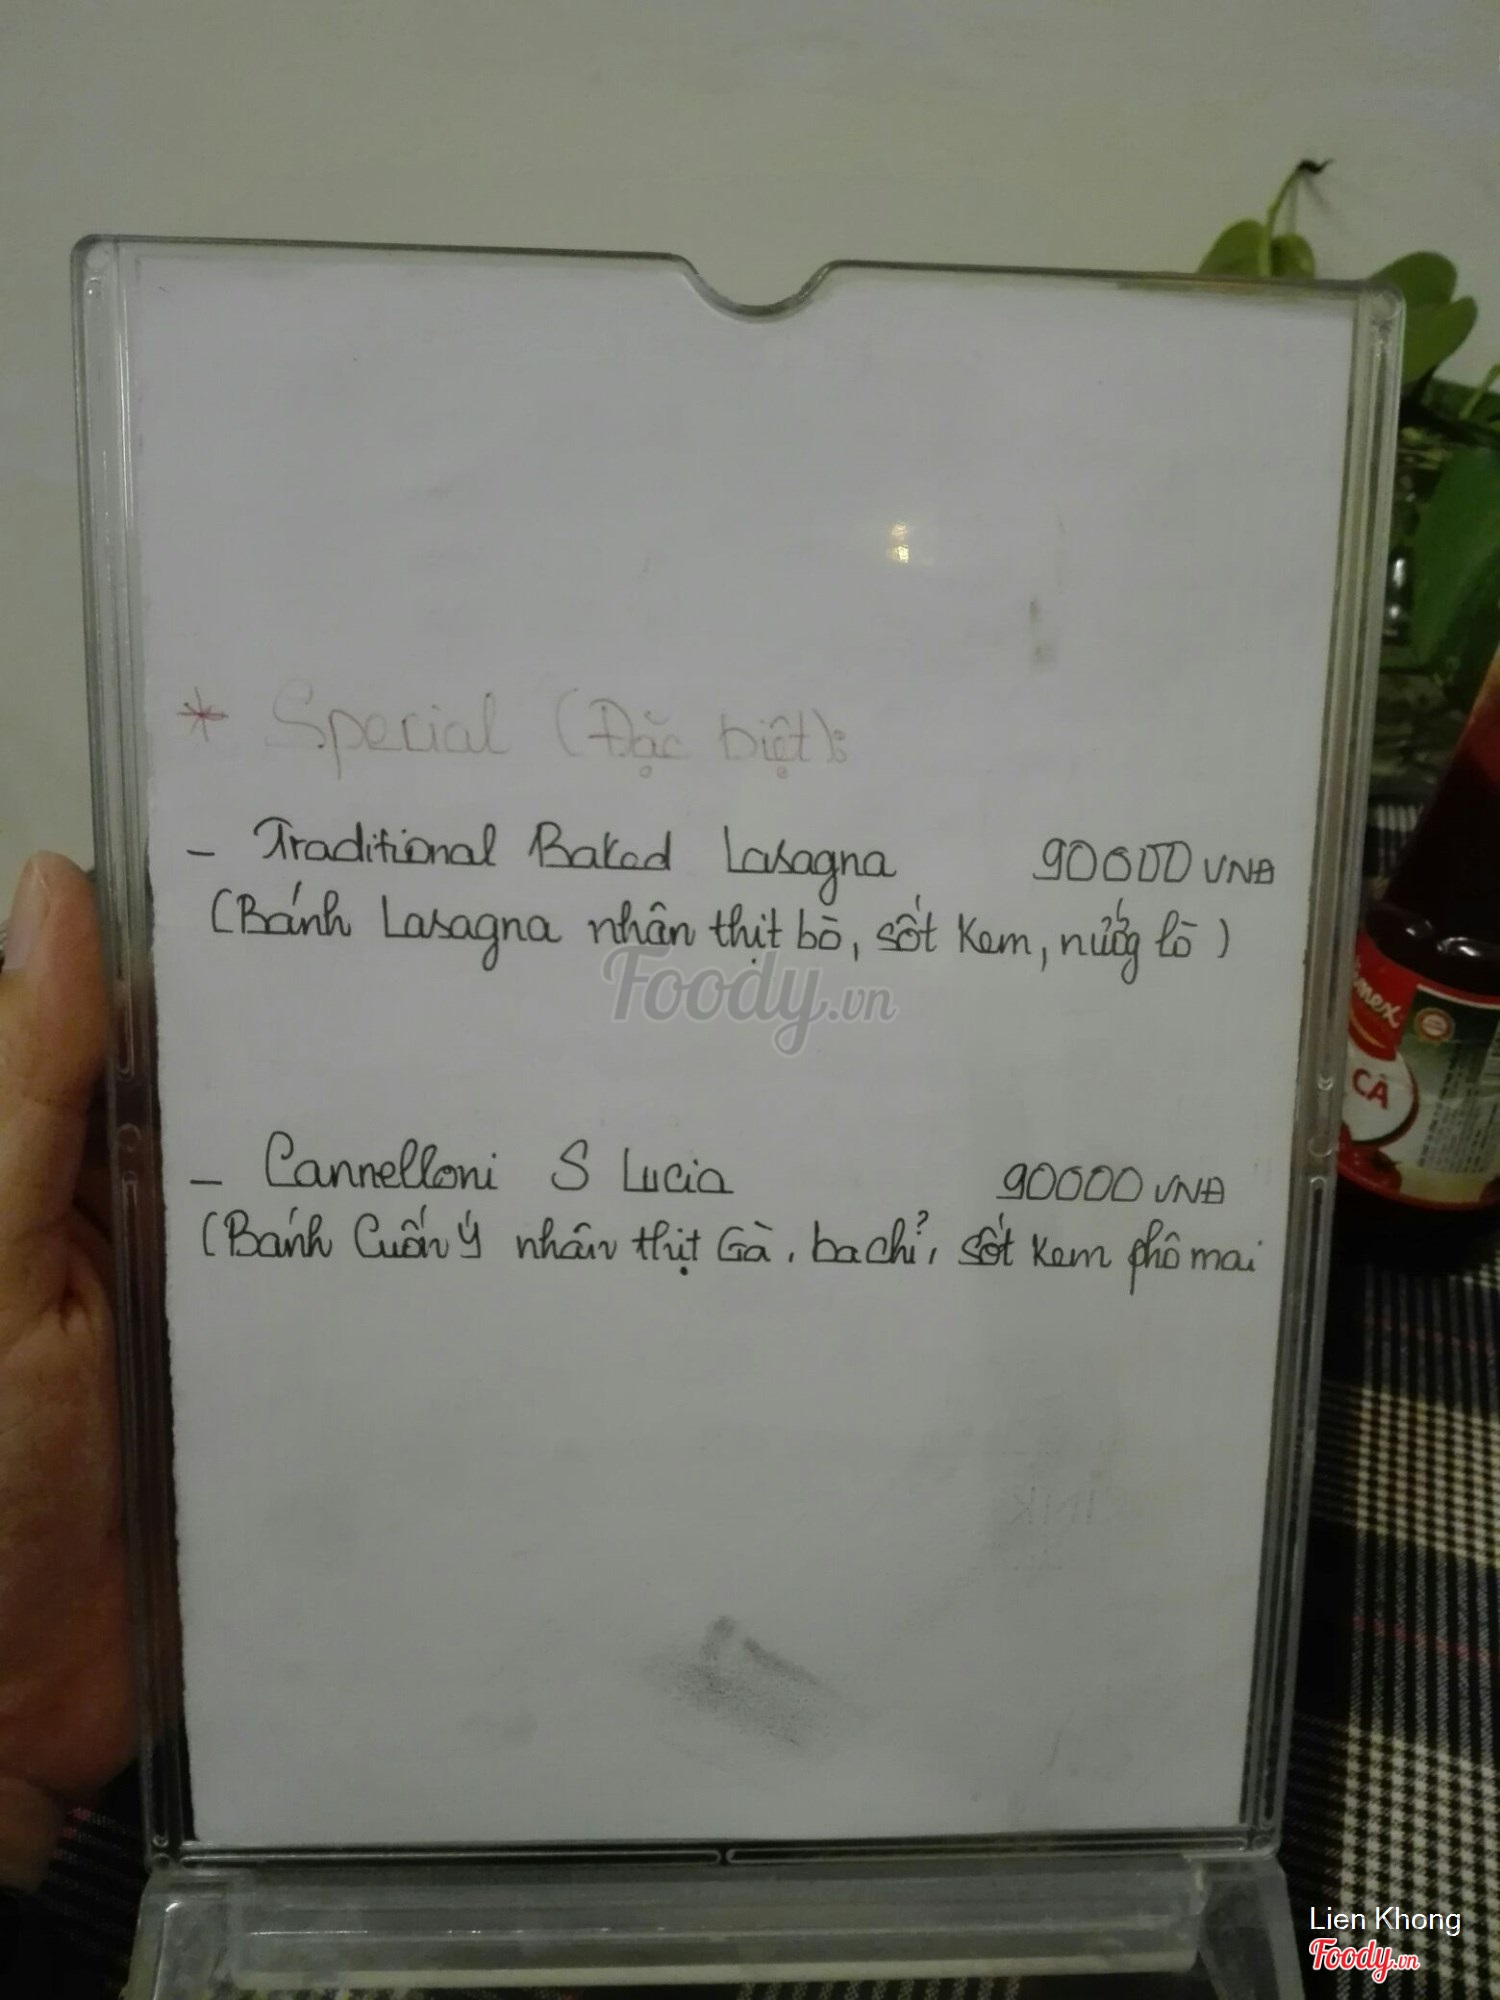 * Special (Đặc biệt):
- Traditional Baked Lasagna 90000 VNĐ
(Bánh Lasagna nhân thịt bò, sốt kem, nướng lò)
Foody.vn
- Cannelloni S Lucia 90000 VNĐ
(Bánh Cuốn Ý nhân thịt Gà, ba chỉ, sốt kem phô mai
CÀ
Lien Khong
Foody.vn